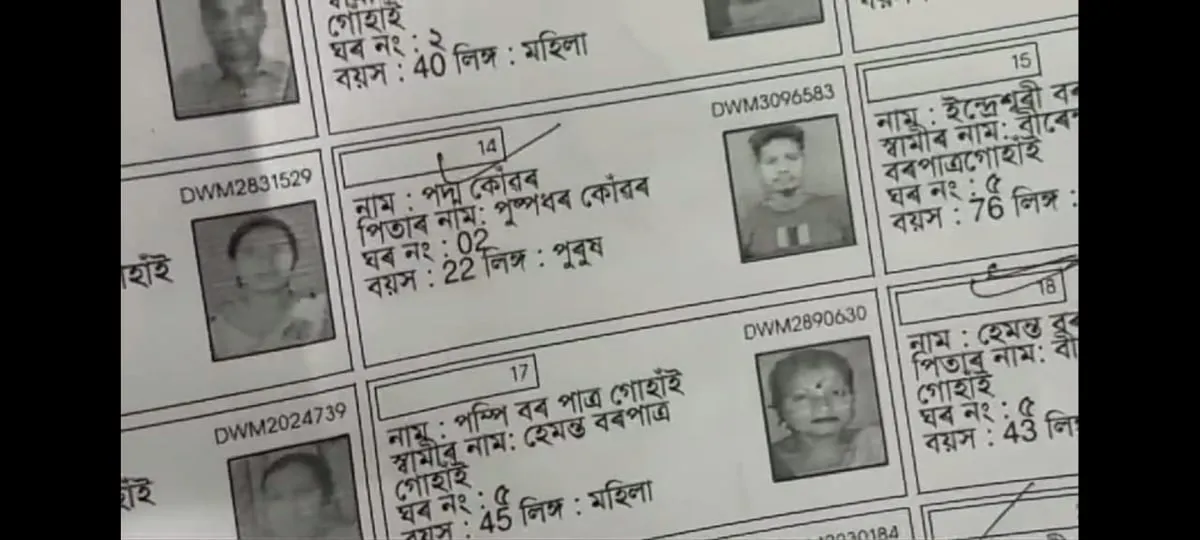 গোহাঁই
ঘৰ নং : ২
বয়স : 40 লিঙ্গ : মহিলা
DWM2831529
গোহাঁই
14
DWM3096583
নাম : পদ্ম কোঁৱৰ
পিতাৰ নাম: পুষ্পধৰ কোঁৱৰ
ঘৰ নং : 02
বয়স : 22 লিঙ্গ : পুৰুষ
15
নাম : ইন্দ্ৰেশ্বৰী বৰ
স্বামীৰ নাম:
বৰপাত্ৰগোহাঁই
ঘৰ নং : ৫
বয়স : 76 লিঙ্গ :
DWM2024739
17
DWM2890630
নাম : পম্পি বৰ পাত্ৰ গোহাঁই
স্বামীৰ নাম: হেমন্ত বৰপাত্ৰ
গোহাঁই
ঘৰ নং : ৫
বয়স : 45 লিঙ্গ : মহিলা
18
নাম : হেমন্ত বৰ
পিতাৰ নাম:
গোহাঁই
ঘৰ নং : ৫
বয়স : 43